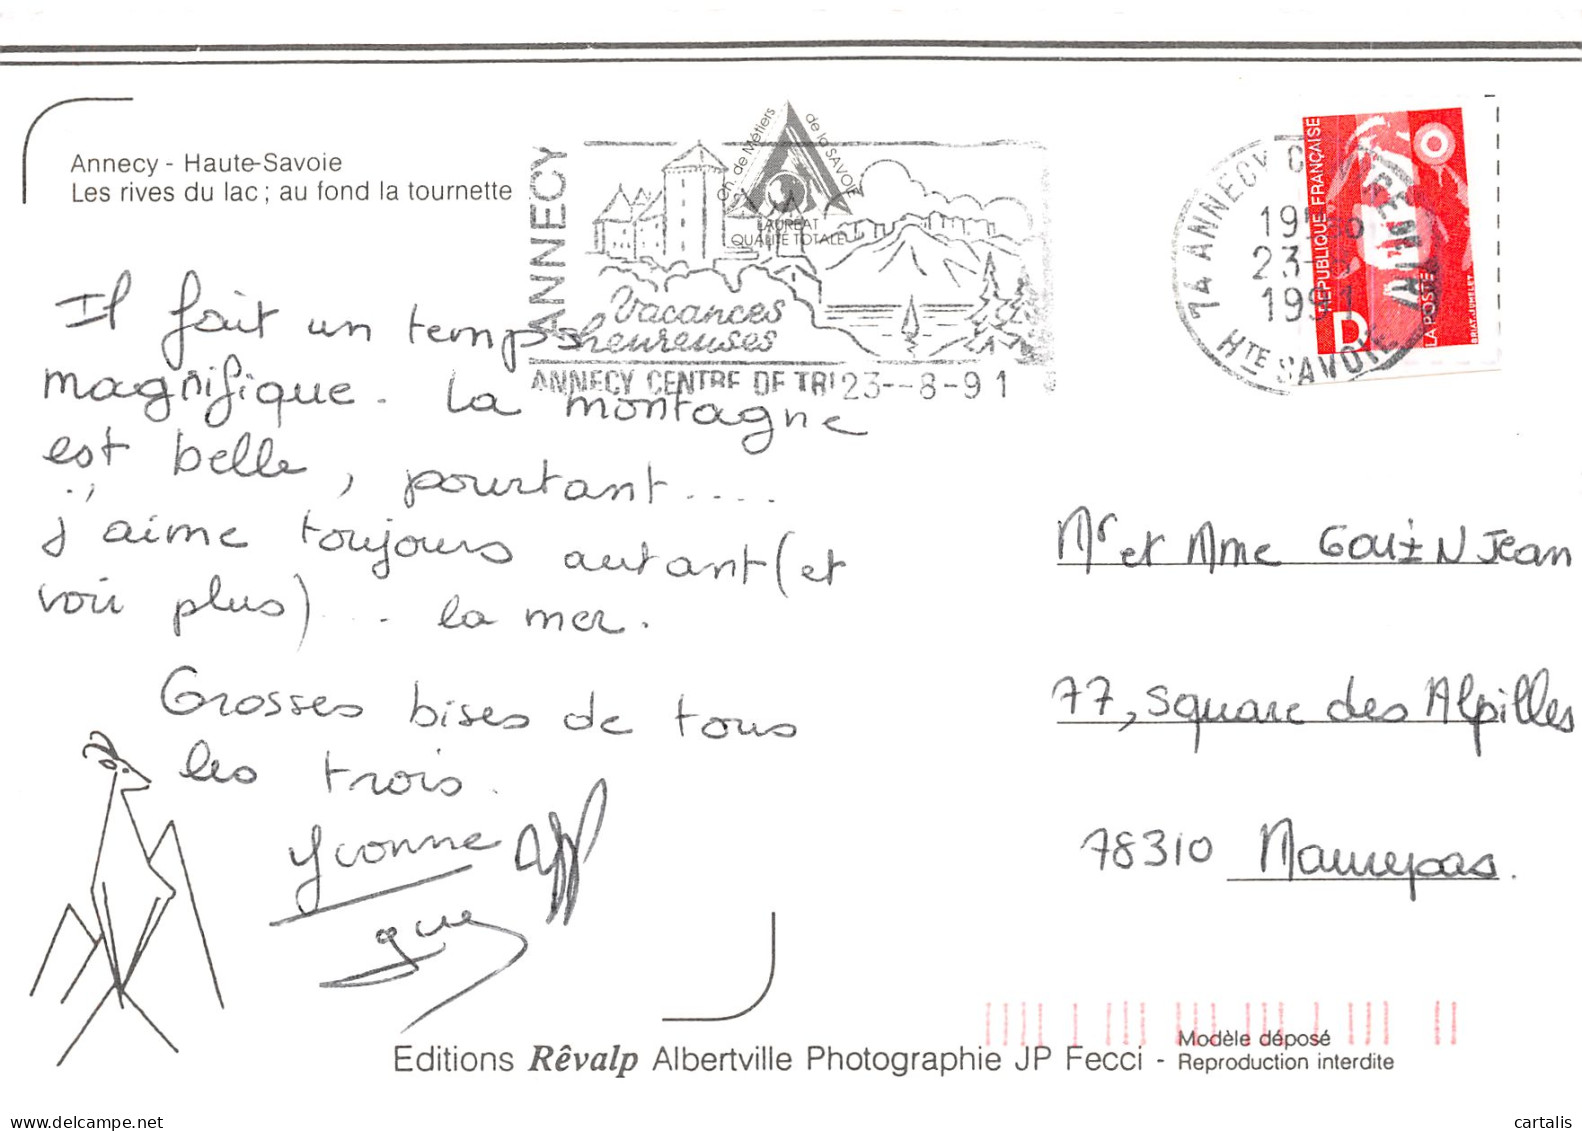 Annecy - Haute-Savoie
Les rives du lac ; au fond la tournette
ANNECY
Ch. de Métiers de la SAVOIE
LAUREAT
QUALITE TOTALE
Vacances
heureuses
ANNECY CENTRE DE TRI 23--8-91
74 ANNECY
23-8
1991
Hte SAVOIE
REPUBLIQUE FRANÇAISE
D
LA POSTE
BRIAT-JUMELET
Il fait un temps
magnifique. La montagne
est belle, pourtant....
j'aime toujours autant (et
voir plus)... la mer.
Grosses bises de tous
les trois.
Yvonne
Mr et Mme GOUIN Jean
77, square des Alpilles
78310 Maurepas.
Editions Rêvalp Albertville Photographie JP Fecci - Modèle déposé
Reproduction interdite
cartalis delcampe.net